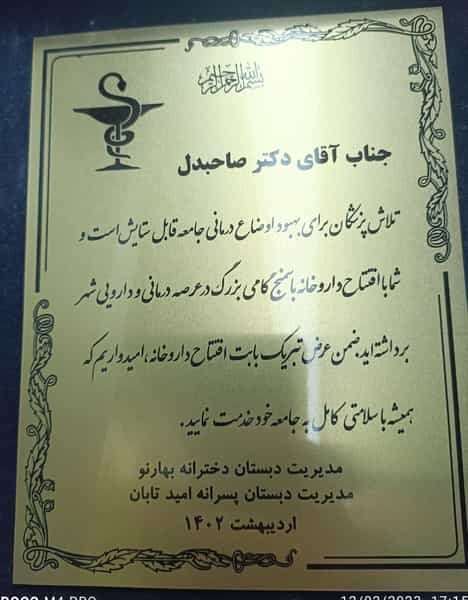 بسم الله الرحمن الرحیم
جناب آقای دکتر صاحبدل
تلاش پزشگان برای بهبود اوضاع درمانی جامعه قابل ستایش است و
شما با افتتاح داروخانه باسمنج گامی بزرگ در عرصه درمانی و دارویی شهر
برداشته اید. ضمن عرض تبریک بابت افتتاح داروخانه، امیدواریم که
همیشه با سلامتی کامل به جامعه خود خدمت نمایید.
مدیریت دبستان دخترانه بهارنو
مدیریت دبستان پسرانه امید تابان
اردیبهشت ۱۴۰۲
POCO M4 PRO
17:15